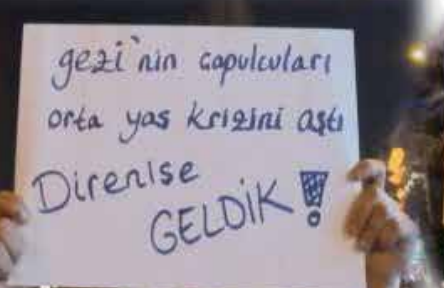 gezi'nin capulcuları
orta yas krizini aştı
Direnise
GELDİK!